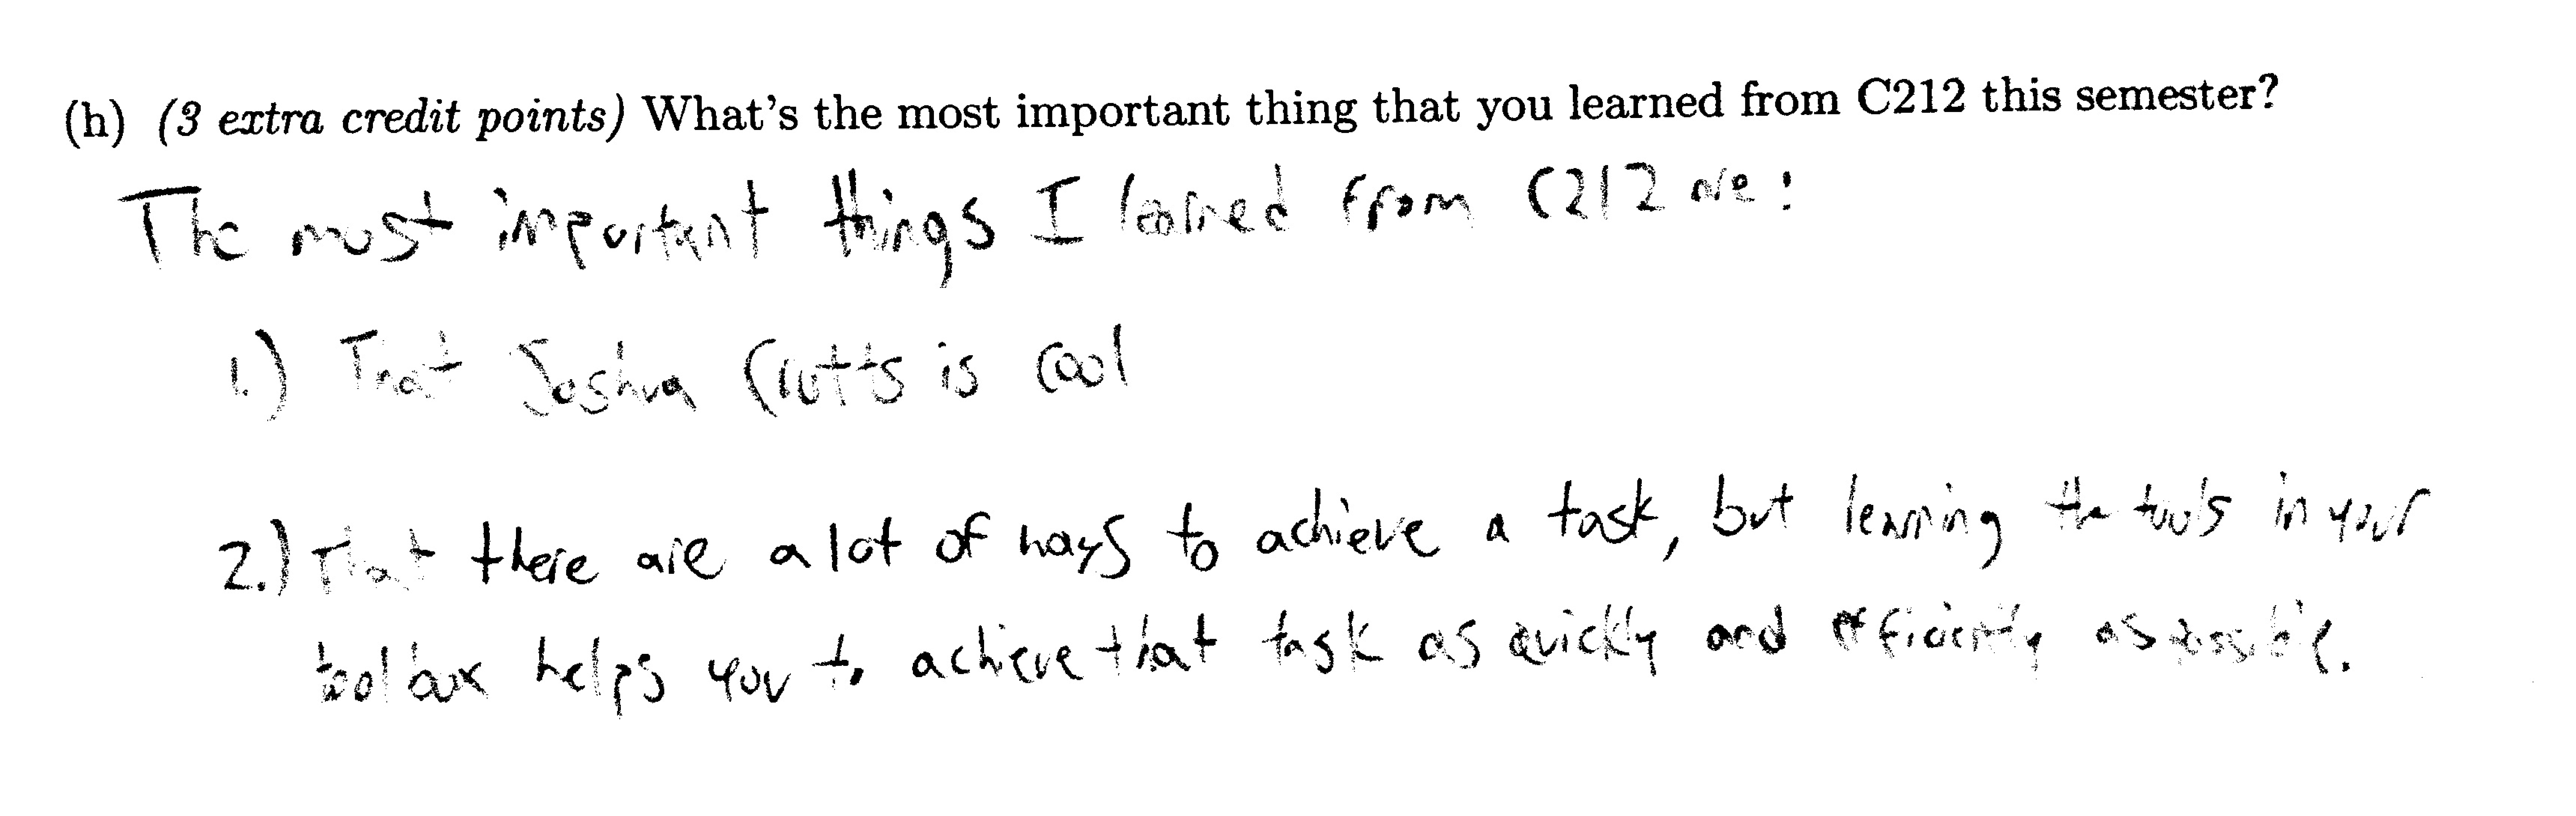 (h) (3 extra credit points) What's the most important thing that you learned from C212 this semester?
The most important things I learned from C212 are:
1.) That Joshua Crotts is cool
2.) That there are a lot of ways to achieve a task, but learning the tools in your
toolbox helps you to achieve that task as quickly and efficiently as possible.